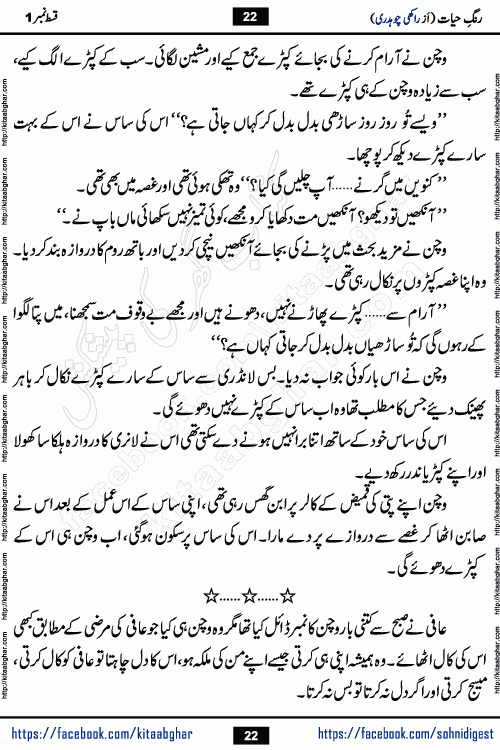 رنگِ حیات (از راکھی چوہدری)
22
قسط نمبر 1
وچن نے آرام کرنے کی بجائے کپڑے جمع کیے اور مشین لگائی۔ سب کے کپڑے الگ کیے،
سب سے زیادہ وچن کے ہی کپڑے تھے۔
’’ویسے تُو روز روز ساڑھی بدل بدل کر کہاں جاتی ہے؟‘‘ اس کی ساس نے اس کے بہت
سارے کپڑے دیکھ کر پوچھا۔
’’کنویں میں گرنے......آپ چلیں گی کیا؟‘‘ وہ تھکی ہوئی تھی اور غصہ میں بھی تھی۔
’’آنکھیں تو دیکھو؟ آنکھیں مت دکھایا کرو مجھے، کوئی تمیز نہیں سکھائی ماں باپ نے۔‘‘
وچن نے مزید بحث میں پڑنے کی بجائے آنکھیں نیچی کر دیں اور باتھ روم کا دروازہ بند کر دیا۔
وہ اپنا غصہ کپڑوں پر نکال رہی تھی۔
’’آرام سے......کپڑے پھاڑنے نہیں، دھونے ہیں اور مجھے بے وقوف مت سمجھنا، میں پتا لگوا
کے رہوں گی کہ تُو ساڑھیاں بدل بدل کر جاتی کہاں ہے؟‘‘
وچن نے اس بار کوئی جواب نہ دیا۔ بس لانڈری سے ساس کے سارے کپڑے نکال کر باہر
پھینک دیئے جس کا مطلب تھا وہ اب ساس کے کپڑے نہیں دھوئے گی۔
اس کی ساس خود کے ساتھ اتنا برا نہیں ہونے دے سکتی تھی اس نے لانری کا دروازہ ہلکا سا کھولا
اور اپنے کپڑے اندر رکھ دیے۔
وچن اپنے پتی کی قمیض کے کالر پر ابن گھس رہی تھی، اپنی ساس کے اس عمل کے بعد اس نے
صابن اٹھا کر غصے سے دروازے پر دے مارا۔ اس کی ساس پر سکون ہو گئی، اب وچن ہی اس کے
کپڑے دھوئے گی۔
☆......☆......☆
عافی نے صبح سے کتنی بار وچن کا نمبر ڈائل کیا تھا مگر وہ وچن ہی کیا جو عافی کی مرضی کے مطابق کبھی
اس کی کال اٹھائے۔ وہ ہمیشہ اپنی ہی کرتی جیسے اپنے من کی ملکہ ہو، اس کا دل چاہتا تو عافی کو کال کرتی،
میسج کرتی اور اگر دل نہ کرتا تو بس نہ کرتا۔
https://facebook.com/kitaabghar
22
https://facebook.com/sohnidigest
http://kitaabghar.com